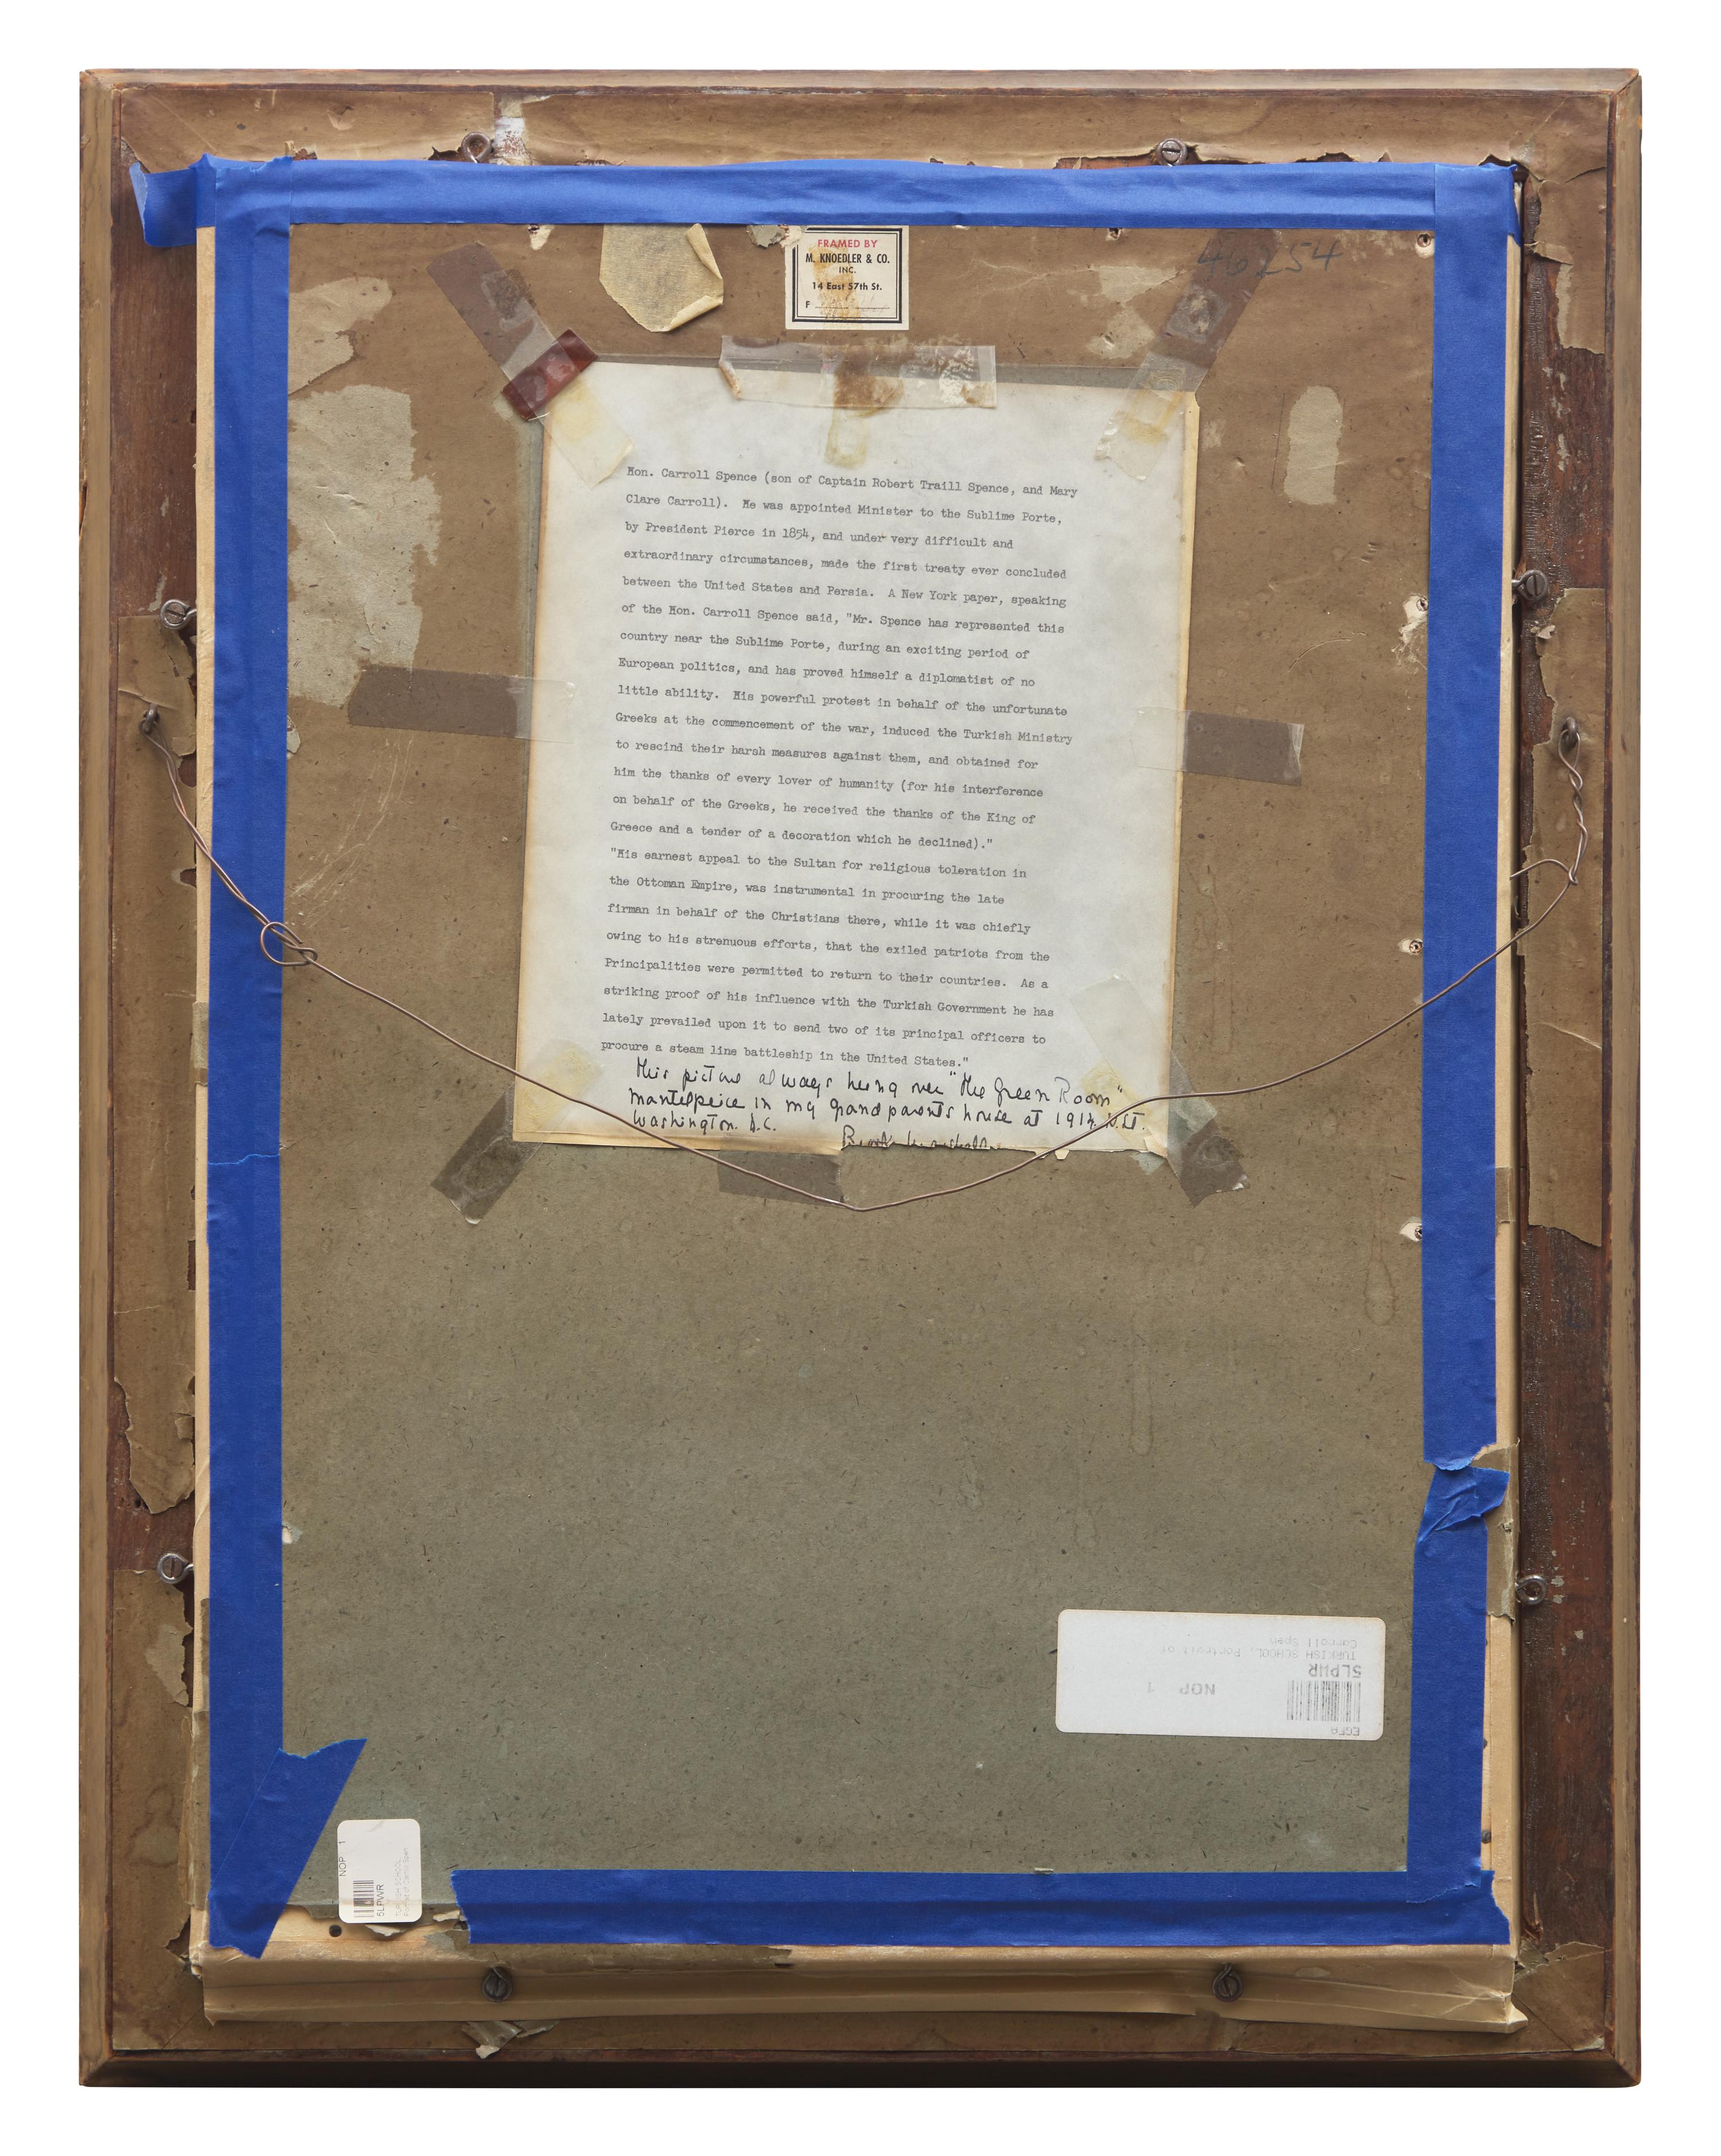 FRAMED BY
M. KNOEDLER & CO.
INC.
14 East 57th St.
F
Hon. Carroll Spence (son of Captain Robert Traill Spence, and Mary
Clare Carroll).  He was appointed Minister to the Sublime Porte,
by President Pierce in 1854, and under very difficult and
extraordinary circumstances, made the first treaty ever concluded
between the United States and Persia.  A New York paper, speaking
of the Hon. Carroll Spence said, "Mr. Spence has represented this
country near the Sublime Porte, during an exciting period of
European politics, and has proved himself a diplomatist of no
little ability.  His powerful protest in behalf of the unfortunate
Greeks at the commencement of the war, induced the Turkish Ministry
to rescind their harsh measures against them, and obtained for
him the thanks of every lover of humanity (for his interference
on behalf of the Greeks, he received the thanks of the King of
Greece and a tender of a decoration which he declined)."
"His earnest appeal to the Sultan for religious toleration in
the Ottoman Empire, was instrumental in procuring the late
firman in behalf of the Christians there, while it was chiefly
owing to his strenuous efforts, that the exiled patriots from the
Principalities were permitted to return to their countries.  As a
striking proof of his influence with the Turkish Government he has
lately prevailed upon it to send two of its principal officers to
procure a steam line battleship in the United States."
This picture always hung over "the Green Room"
mantelpeice in my grandparents house at
Washington. D.C.
EGFA
NOP 1
5LPWR
TURKISH SCHOOL, Portrait of
Carroll Spen
NOP 1
5LPWR